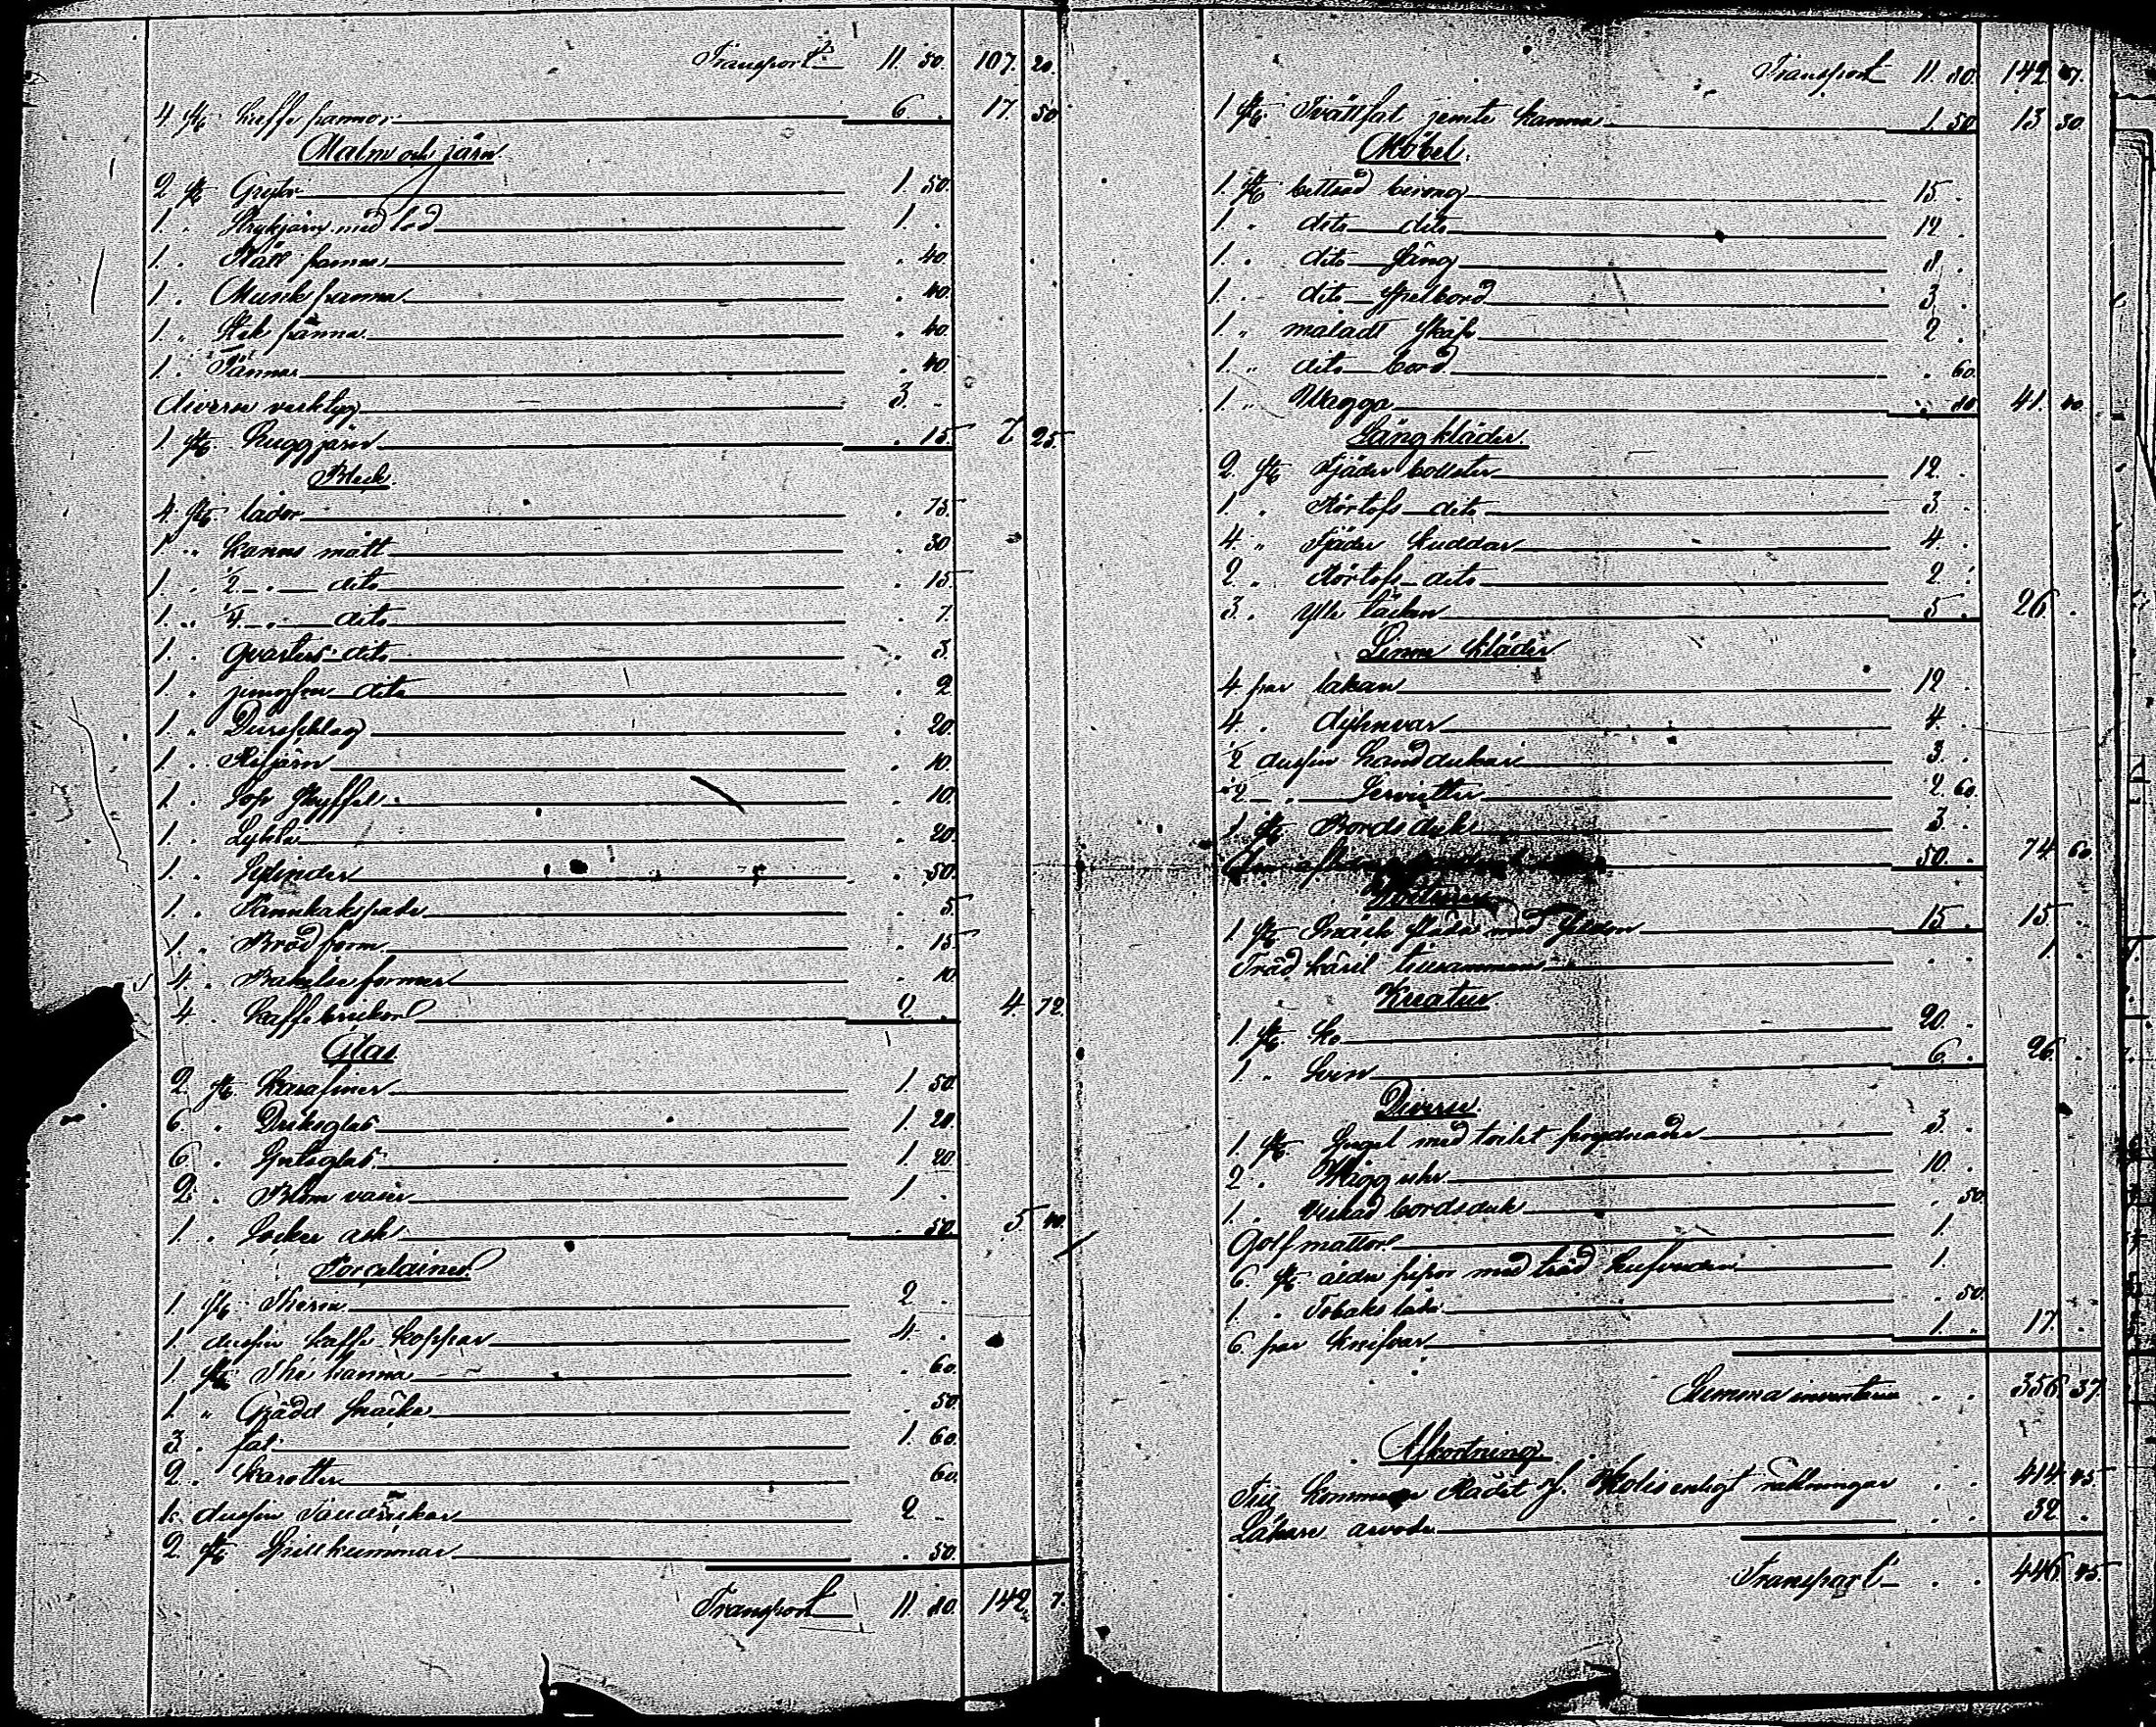 Transport 11. 50. 107. 20.
4 st Kaffe pannor 6 . 17. 50
Malm och järn
2 st Grytor 1. 50.
1. . Strykjärn med lod 1. .
1. . Ståll panna . 40.
1. . Munk panna . 40.
1. . Stek panna . 40
1. . Pannas . 40
diverse verktyg 3. -
1 st Huggjärn . 15. 7 25
Bleck.
4. st. lådor . 75.
1 .. Kanns mått . 30
1. . 1/2 - . - dito . 15.
1. .. 1/4 - . - dito . 7.
1. . qvarters dito . 3.
1. . jungfru dito . 2
1. . Durschlag . 20.
1. . Rifjärn . 10.
1. . Sop skyffel . 10.
1. . Lykta . 20.
1. . Cylinder . 50.
1. . Pannkakspade . 5.
1. . Bröd form . 15.
4. . Bakelse former . 10
4 . Kaffe brickor 2 . 4 72.
Glas
2. st. Karafiner 1. 50.
6 . Dricksglas 1. 20.
6 . Spetsglas 1. 20
2. . Blom vaser 1. .
1. . Socker ask . 50. 5 40.
Porcelainer
1. st. Therin 2 .
1. dussin kaffe koppar 4. .
1. st. The kanna . 60.
1. " Grädd snäcka . 50.
3. . fat 1. 60.
2. . Karotter 60.
1/2 dussin Tallrickar 2 -
2. st Spillkummar . 50.
Transport 11. 80. 142. 7.
Transport 11. 80. 142 07.
1 st. Tvättfat jemte kanna 1. 50. 13 30.
Möbel.
1. st bettsad 15 .
1. " dito dito 12 .
1. . dito Säng 8 .
1. . dito Spelbord 3 .
1. " måladt skåp 2 .
1. " dito bord . 60.
1. " Vagga . 80. 41. 40.
Sängkläder.
2. st Fjäder bolster 12. .
1. . Rörtofs dito 3 .
4. " Fjäder Kuddar 4. .
2. . Rörtofs dito 2. .
3. . Ylle täcken 5 . 26. .
Linne kläder
4 par lakan 12 .
4. . dyhnvar 4 .
1/2 dussin Handdukar 3. .
1/2 - . - Servietter 2 60.
1. st Bordsduk 3. .
50. . 74 60.
1. st. släde med 15 . 15 .
Träd käril tillsammans . . 1. .
Kreatur
1. st. ko 20. .
1. " Svin 6 . 26. .
Diverse
1. st. Spegel med toilet 3. .
2. . Vägguhr 10. .
1. . virkad bordsduk . 50
Golf mattor 1.
6. st äldre pipor med träd hufvuden 1.
1. . Tobaks låda . 50.
6. par Knifvar 1. . 17. .
Summa inventarier . . 356 37.
Afkortning
Till Kommerse Rådet J. enligt räkningar . . 414 45.
Läkare arvode . . 32 .
Transport . . 446 45.